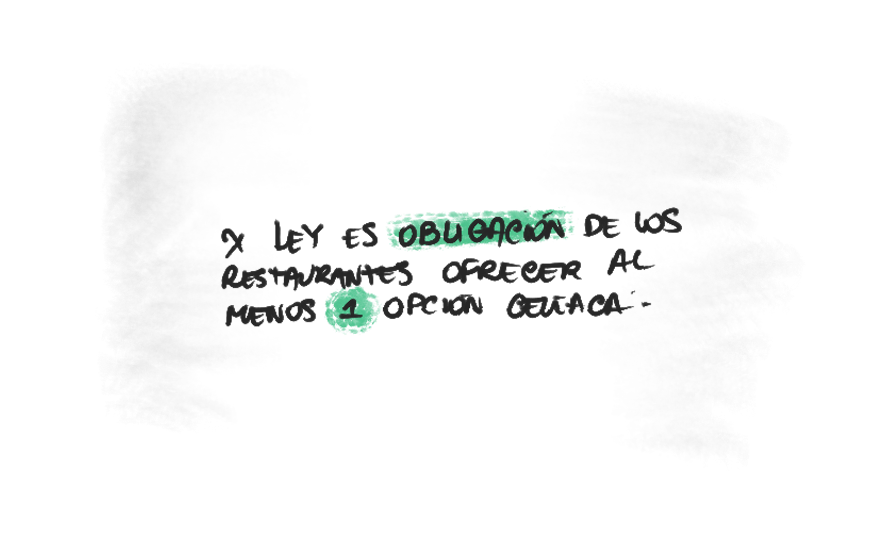 X LEY ES OBLIGACIÓN DE LOS
RESTAURANTES OFRECER AL
MENOS 1 OPCIÓN CELIACA.